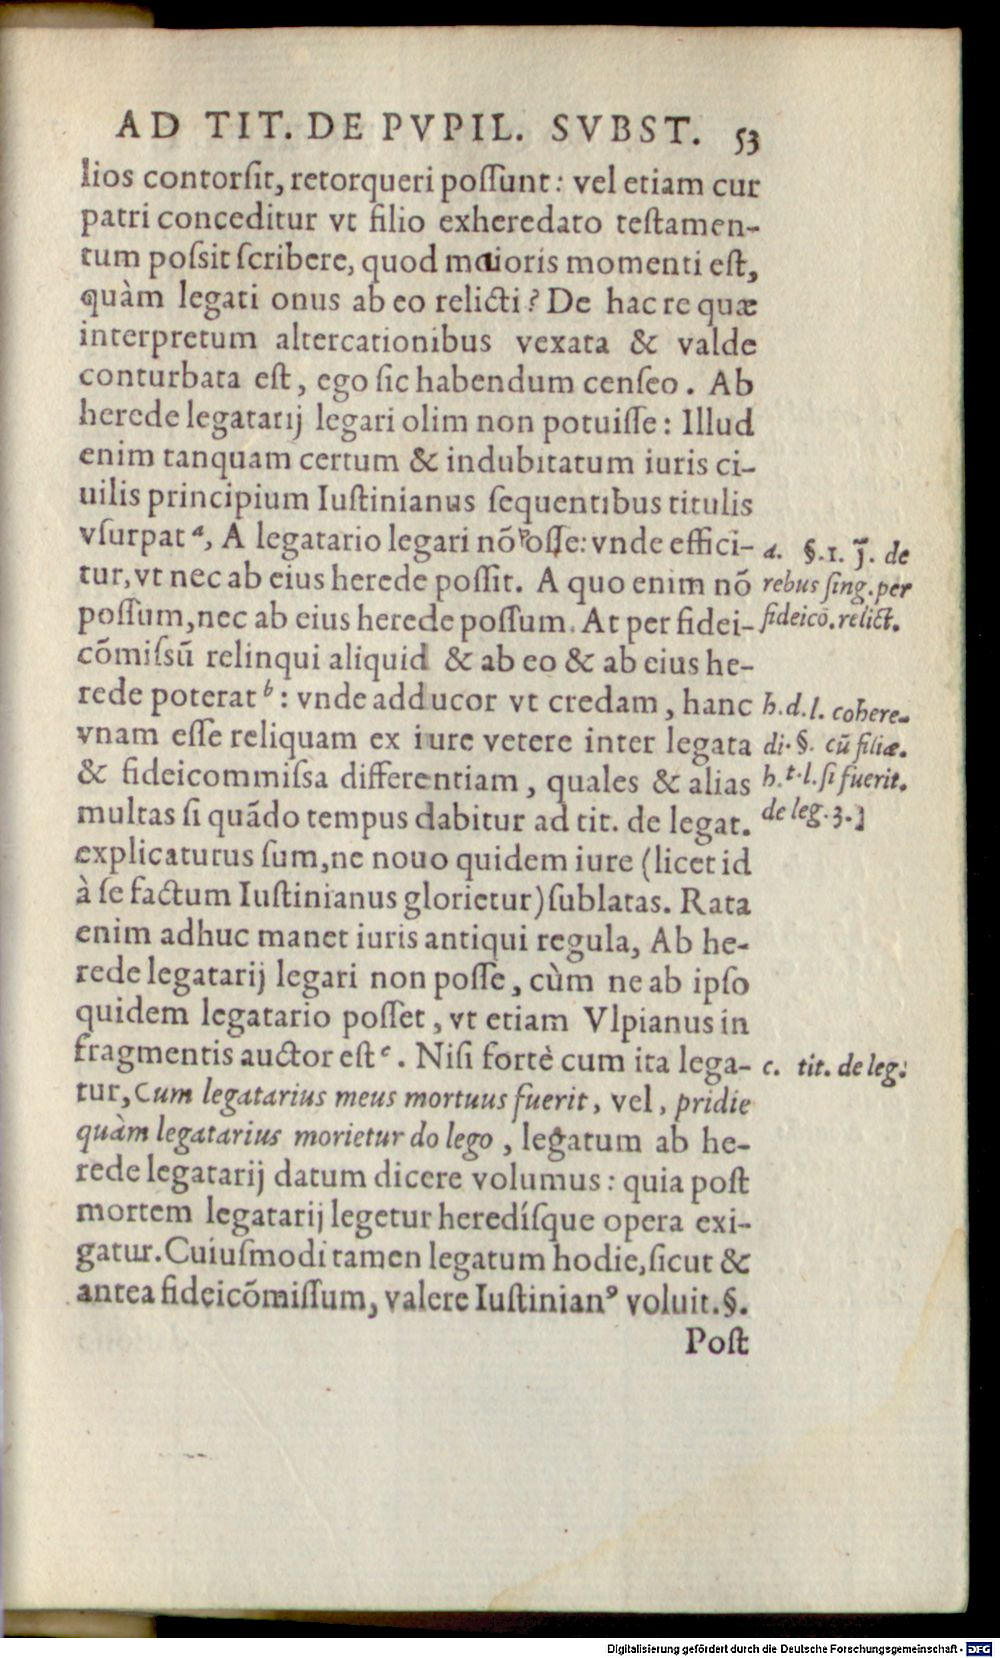 AD TIT. DE PVPIL. SVBST. 53
lios contorſit, retorqueri poſſunt: vel etiam cur
patri conceditur vt filio exheredato teſtamen-
tum poſsit ſcribere, quod maioris momenti eſt,
quàm legati onus ab eo relicti? De hac re quæ
interpretum altercationibus vexata & valde
conturbata eſt, ego ſic habendum cenſeo. Ab
herede legatarij legari olim non potuiſſe: Illud
enim tanquam certum & indubitatum iuris ci-
uilis principium Iuſtinianus ſequentibus titulis
vſurpat a, A legatario legari nõ poſſe: vnde effici-
tur, vt nec ab eius herede poſſit. A quo enim nõ
poſſum, nec ab eius herede poſſum. At per fidei-
cõmiſsũ relinqui aliquid & ab eo & ab eius he-
rede poterat b: vnde adducor vt credam, hanc
vnam eſſe reliquam ex iure vetere inter legata
& fideicommiſsa differentiam, quales & alias
multas ſi quãdo tempus dabitur ad tit. de legat.
explicaturus ſum, ne nouo quidem iure (licet id
à ſe factum Iuſtinianus glorietur) ſublatas. Rata
enim adhuc manet iuris antiqui regula, Ab he-
rede legatarij legari non poſſe, cùm ne ab ipſo
quidem legatario poſſet, vt etiam Vlpianus in
fragmentis auctor eſt c. Niſi fortè cum ita lega-
tur, Cum legatarius meus mortuus fuerit, vel, pridie
quàm legatarius morietur do lego, legatum ab he-
rede legatarij datum dicere volumus: quia poſt
mortem legatarij legetur heredíſque opera exi-
gatur. Cuiuſmodi tamen legatum hodie, ſicut &
antea fideicõmiſſum, valere Iuſtinianꝰ voluit. §.
Poſt
a. §. 1. J̃. de
rebus ſing. per
fideicõ. relict.
b. d. l. cohere-
di. §. cũ filiæ.
h. t. l. ſi fuerit.
de leg. 3. ]
c. tit. de leg.
Digitalisierung gefördert durch die Deutsche Forschungsgemeinschaft - DFG